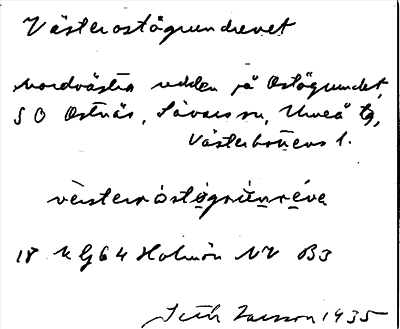 Västerostögrundrevet
nordvästra udden på Ostögrundet,
SO Ostnäs, Sävars sn, Umeå tg,
Västerbottens l.
vèsterròstǫgrúnréva
18 K G64 Holmön NV B3
Seth Larsson 1935